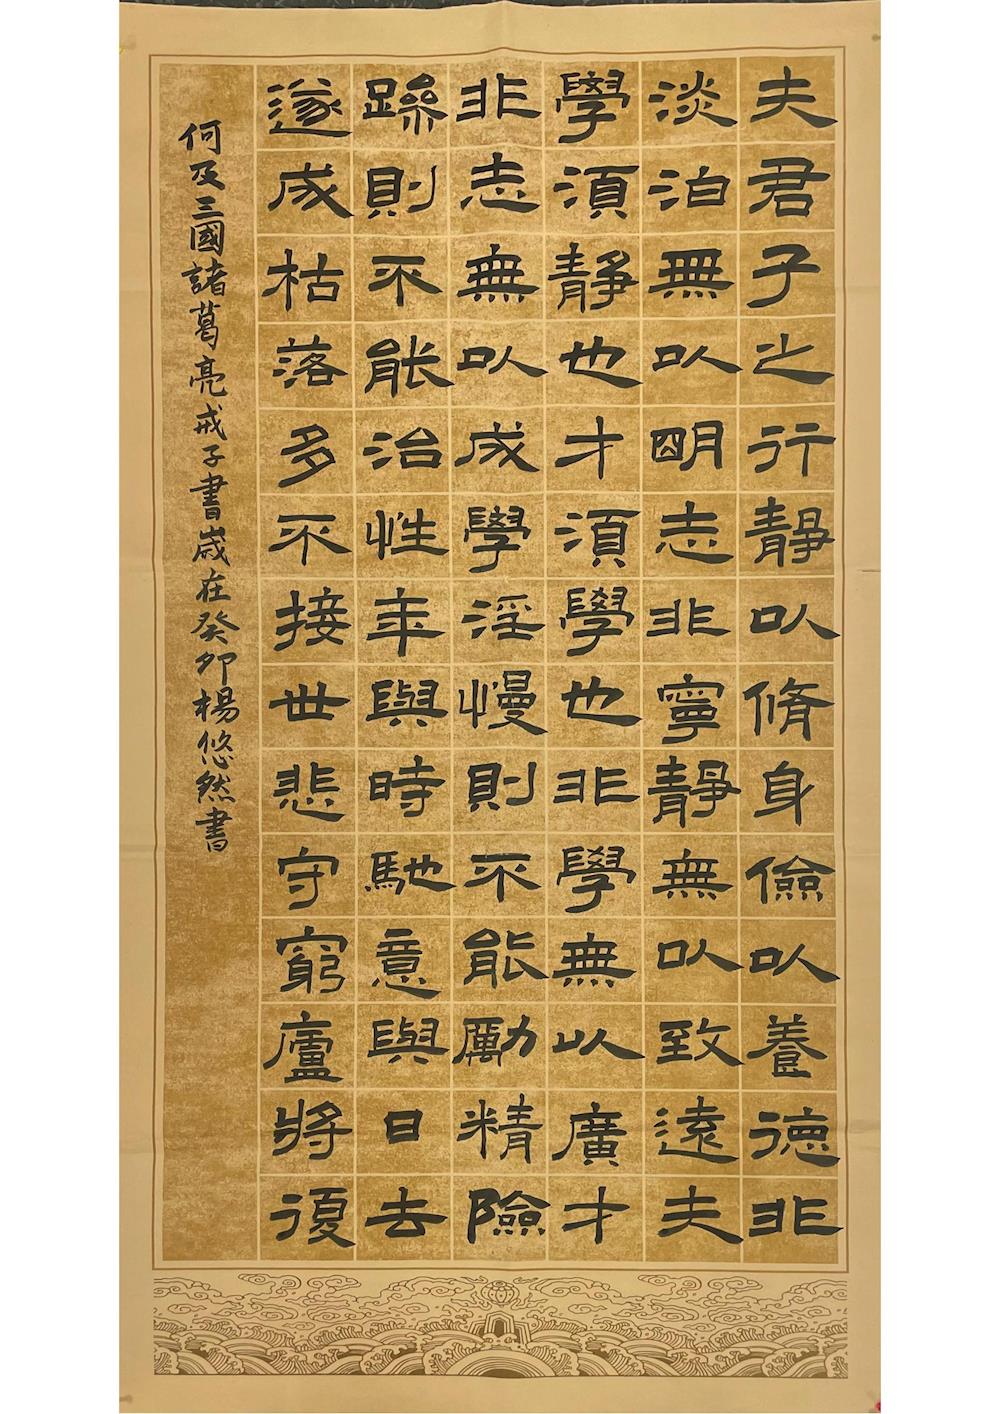 夫君子之行靜以脩身儉以養德非
淡泊無以明志非寧靜無以致遠夫
學須靜也才須學也非學無以廣才
非志無以成學淫慢則不能勵精險
躁則不能治性年與時馳意與日去
遂成枯落多不接世悲守窮廬將復
何及三國諸葛亮戒子書歲在癸卯楊悠然書